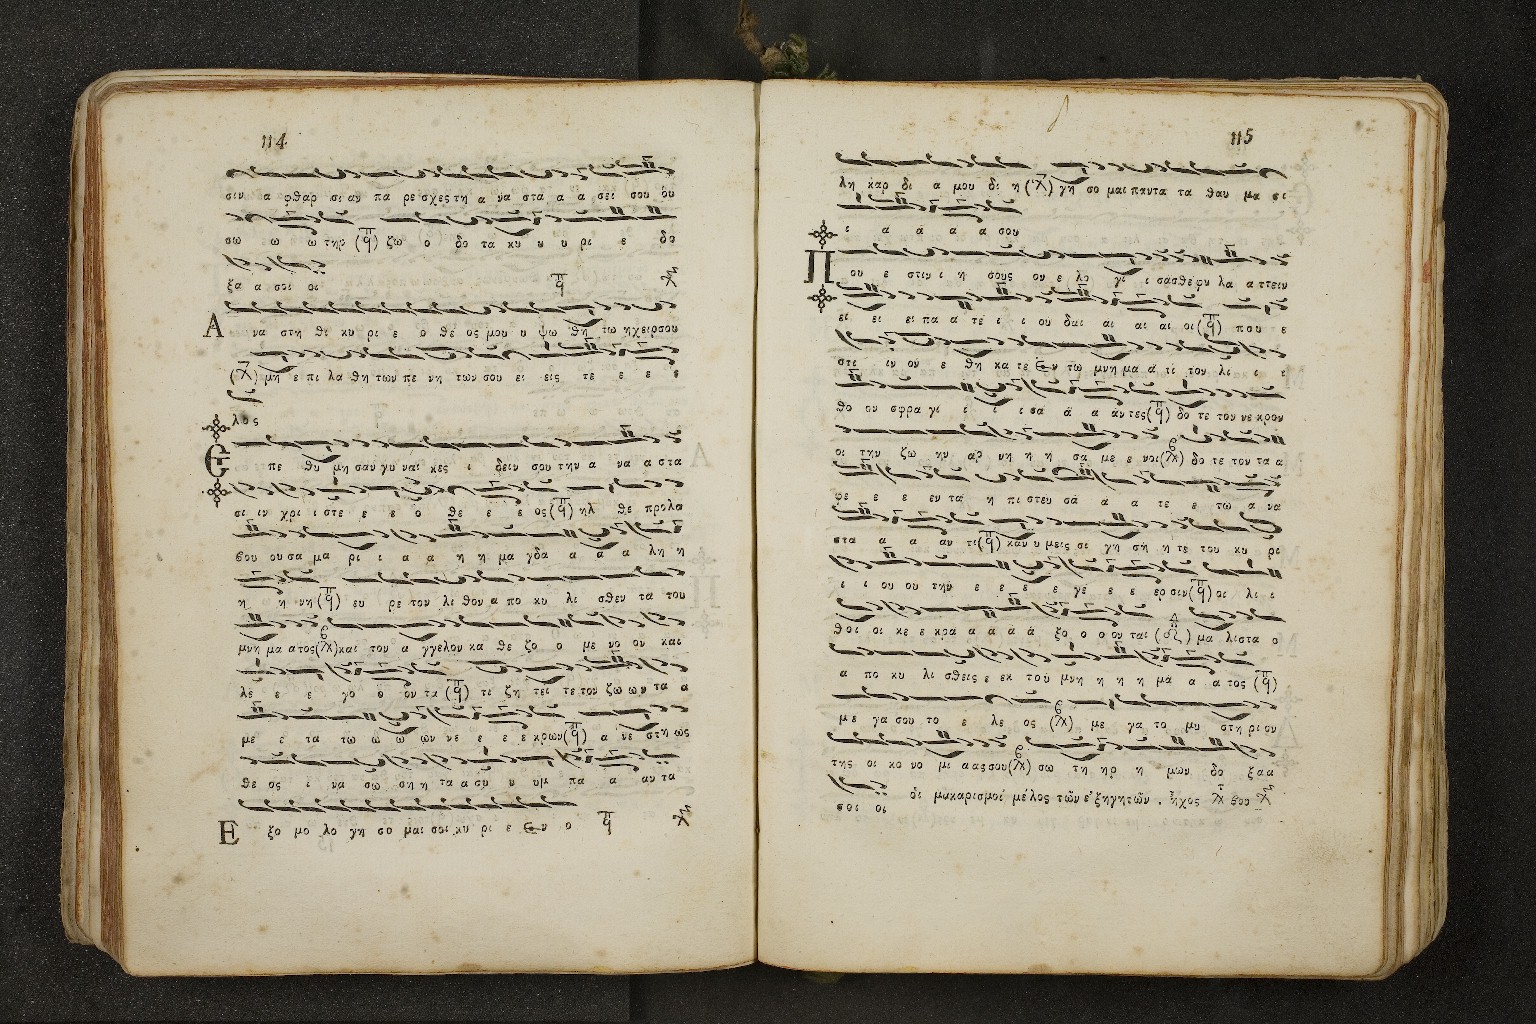 114
σιν α φθαρ σι αν πα ρε σχες τη α να στα α α σει σου ου
σω ω ω τηρ (π̅ϥ) ζω ο δο τα κυ υ υ ρι ε δο
ξα α σοι οι
Α να στη θι κυ ρι ε ο θε ος μου υ ψω θη τω η χειρ σου
μη ε πι λα θη των πε νη των σου ει εις τε ε ε ε
λος
Ε πε θυ μη σαν γυ ναι κες ι δειν σου την α να α στα
σι ιν χρι ι στε ε ε ο θε ε ε ος (π̅ϥ) ηλ θε προ λα
βου ου σα μα ρι ι α α η η μα γδα α α α λη η
η η νη (π̅ϥ) ευ ρε τον λι θον α πο κυ λι σθεν τα του
μνη μα ατος και τον α γγελον κα θε ζο ο με νο ον και
λε ε ε γο ο ον τα (π̅ϥ) τι ζη τει τε τον ζω ων τα α
με ε τα τω ω ω ων νε ε ε ε κρων (π̅ϥ) α νε στη ως
θε ος ι να σω ση η τα α συ υ υμ πα α αν τα
Ε ξο μο λο γη σο μαι σοι κυ ρι ε εν ο
115
λη καρ δι α μου δι η γη σο μαι παντα τα θαυ μα σι
ι α α α α σου
Π ου ε στιν ι η σους ον ε λο γι ι σασθε φυ λα α ττειν
ει ει ει πα α τε ι ι ου δαι αι αι αι οι (π̅ϥ) που ε
στι ιν ον ε θη κα τε εν τω μνη μα α τι τον λι ι ι
θο ον σφρα γι ι ι ι σα α α αντες (π̅ϥ) δο τε τον νε κρον
οι την ζω ην αρ νη η η σα με ε νοι δο τε τον τα α
φε ε ε εν τα η πι στευ σα α α τε ε τω α να
στα α α αν τι (π̅ϥ) καν υ μεις σι γη ση η τε του κυ ρι
ι ι ου ου την ε ε ε ε γε ε ε ερ σιν (π̅ϥ) οι λι ι
θοι οι κε ε κρα α α α α ξο ο ο ον ται μα λιστα ο
α πο κυ λι σθεις ε εκ του μνη η η η μα α α τος (π̅ϥ)
με γα σου το ε λε ος με γα το μυ στη ρι ον
της οι κο νο μι α ας σου σω τη ηρ η μων δο ξα α
σοι οι οἱ μακαρισμοί μέλος τῶν ἐξηγητῶν . ἦχος